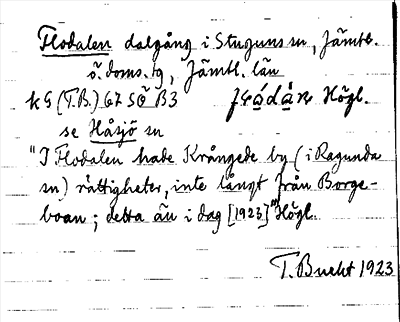 Flodalen dalgång i Stuguns sn, Jämtl.
ö. doms. tg, Jämtl. län
k S (T.B.) 67 SÖ B3 Högl.
se Håsjö sn
"I Flodalen hade Krångede by (i Ragunda
sn) rättigheter, inte långt från Borge-
boan; detta än i dag [1923]" Högl.
T. Bucht 1923